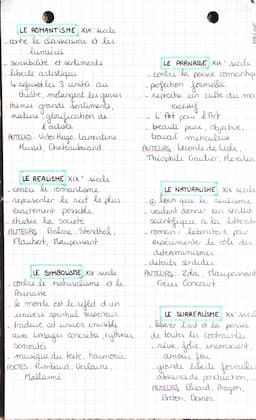 LE ROMANTISME XIX siècle
- contre le classicisme et les
lumières
- sensibilité et sentiments
- liberté artistique
théâtre, mélangent les genres
- thèmes grands sentiments,
nature, glorification de
l'artiste
AUTEURS: Victor Hugo, Lamartine
Musset, Chateaubriand
LE REALISME XIXe siècle
- contre le romantisme
- représenter le réel le plus
exactement possible
- étudie la société
AUTEURS: Balzac, Stendhal,
Flaubert, Maupassant
LE SYMBOLISME XIX siècle
- contre le naturalisme et le
Parnasse
- le monde est le reflet d'un
univers spirituel supérieur
- traduire cet univers invisible
avec images concrètes, rythmes,
sonorités
- musique du texte, harmonie
POETES: Rimbaud, Verlaine,
Mallarmé
LE PARNASSE XIXe siècle
- contre la poésie romantique
- perfection formelle
- reproche un culte du moi
excessif
- L'Art pour l'Art
- beauté pure, objective,
travail minutieux
AUTEURS: Leconte de Lisle,
Théophile Gautier, Heredia
LE NATURALISME XIX siècle
loin que le réalisme,
veulent donner un
scientifique à la littérature
- roman: laboratoire pour
expérimenter le rôle des
déterminismes
- détails sordides
AUTEURS: Zola, Maupassant
Frères Goncourt
LE SURREALISME XXe siècle
- libérer l'art et la pensée
de toutes les contraintes
- rêve, folie, inconscient,
amour fou
- grande liberté formelle
absence de ponctuation,
AUTEURS: Eluard, Aragon,
Breton, Desnos